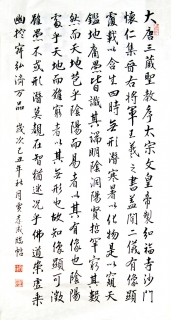 大唐三藏聖教序太宗文皇帝製弘福寺沙門
懷仁集晉右將軍王羲之書蓋聞二儀有像顯
覆載以含生四時無形潛寒暑以化物是以窺天
鑑地庸愚皆識其端明陰洞陽賢哲罕窮其數
然而天地苞乎陰陽而易識者以其有像也陰陽
處乎天地而難窮者以其無形也故知像顯可徵
雖愚不惑形潛莫覩在智猶迷況乎佛道崇虛乘
幽控寂弘濟萬品 歲次乙丑年秋月